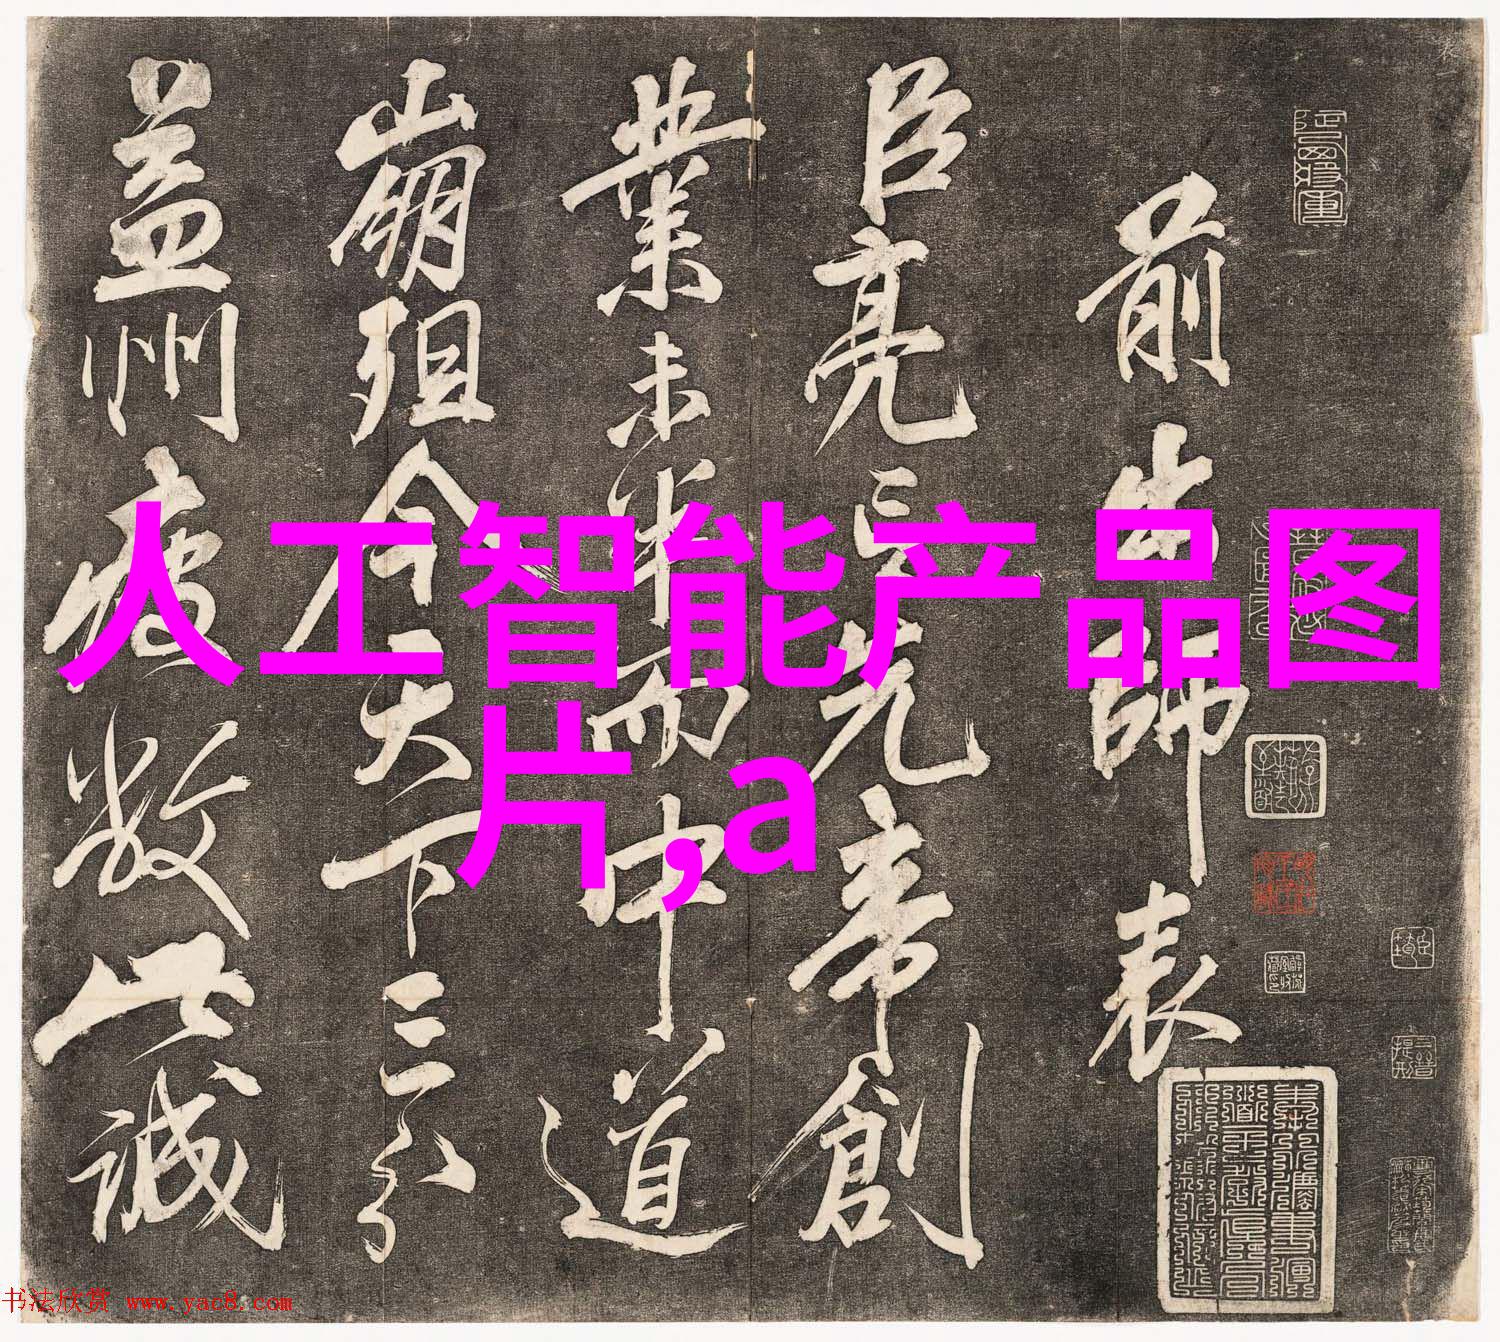 前出師表
臣亮言先帝創
業未半而中道
崩殂今天下三分
益州疲敝此誠
人工智能产品图
片,a
书法欣赏 www.yac8.com